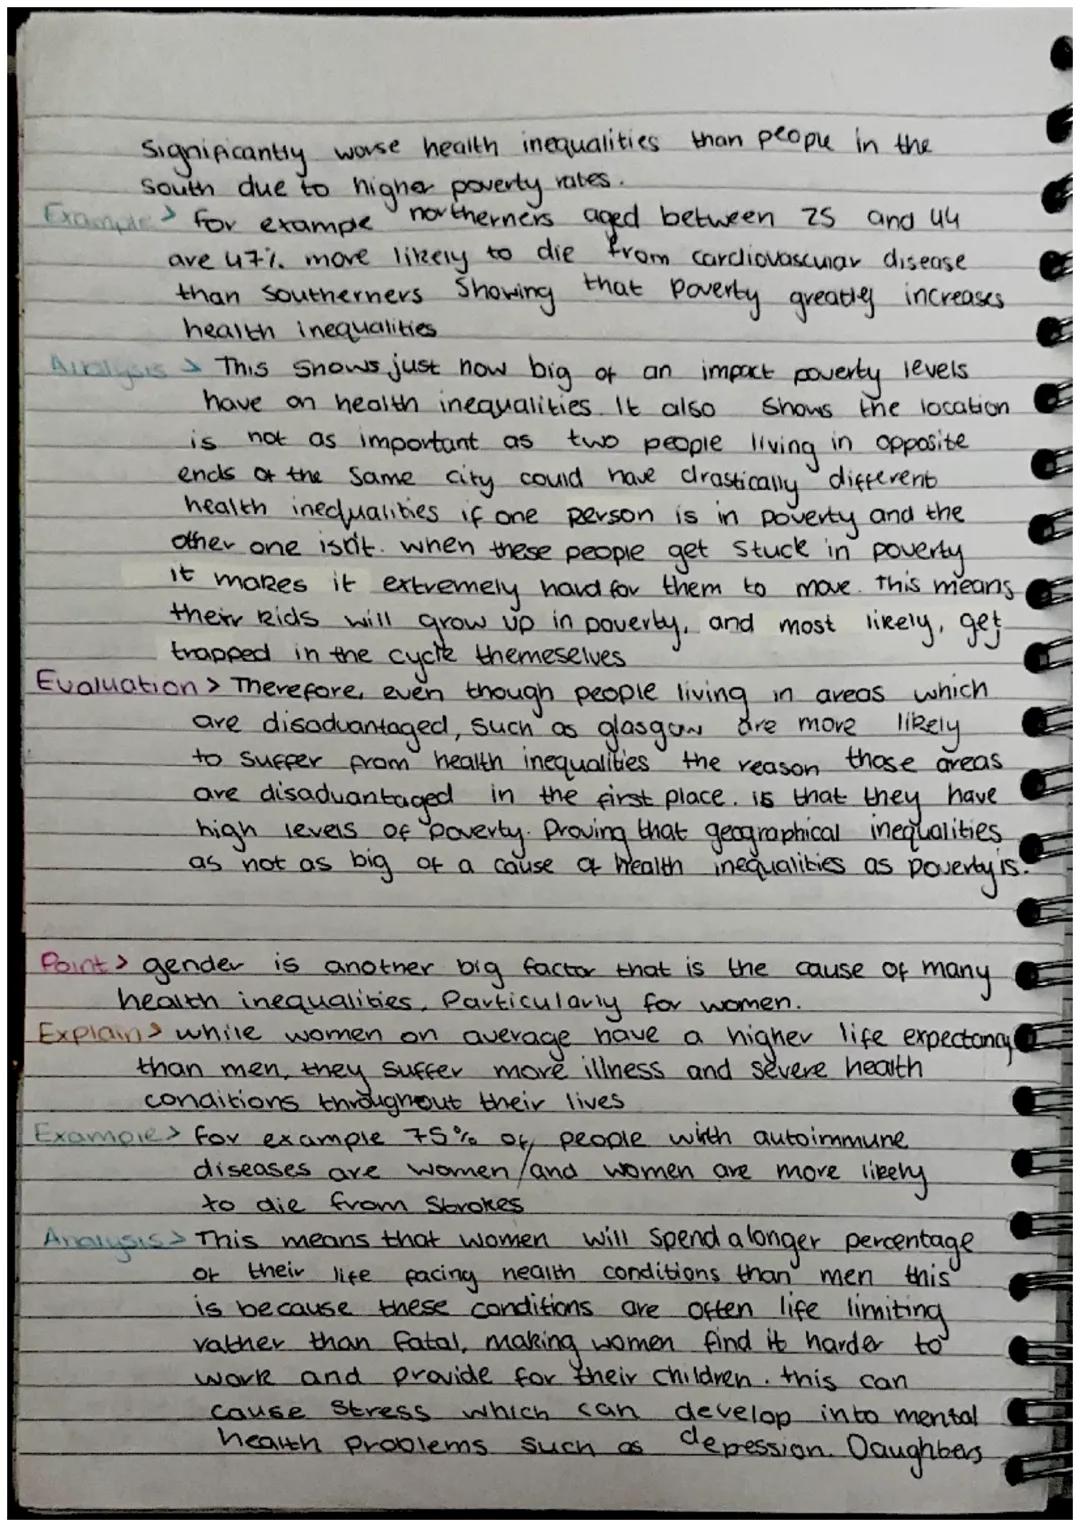 Significantly worse health inequalities than people in the
South due to higher poverty rates.
Example > For example northerners aged between 25 and 44
are 47% more likely to die from cardiovascular disease
than Southerners Showing that Poverty greatley increases
health inequalities
Analysis > This Shows just how big of an impact poverty levels
have on health inequalities. It also Shows the location
is not as important as two people living in opposite
ends of the Same city could have drastically different
health inequalities if one person is in poverty and the
other one isn't. when these people get Stuck in poverty
it makes it extremely hard for them to move. this means
their kids will grow up in poverty, and most likely, get
trapped in the cycle themeselves
Evaluation > Therefore, even though people living in areas which
are disadvantaged, such as glasgow are more likely
to Suffer from health inequalities the reason those areas
are disadvantaged in the first place. is that they have
high levels of poverty. Proving that geographical inequalities
as not as big of a cause of health inequalities as poverty is.
Point > gender is another big factor that is the cause of many
health inequalities, Particularly for women.
Explain > while women on average have a higher life expectancy
than men, they suffer more illness and severe health
conditions throughout their lives
Example > for example 75% of people with autoimmune
diseases are women/and women are more likely
to die from Strokes
Analysis > This means that women will Spend a longer percentage
of their life facing health conditions than men this
is because these conditions are often life limiting
rather than fatal, making women find it harder to
work and provide for their children. this can
cause stress which can develop into mental
health problems such as depression. Daughters